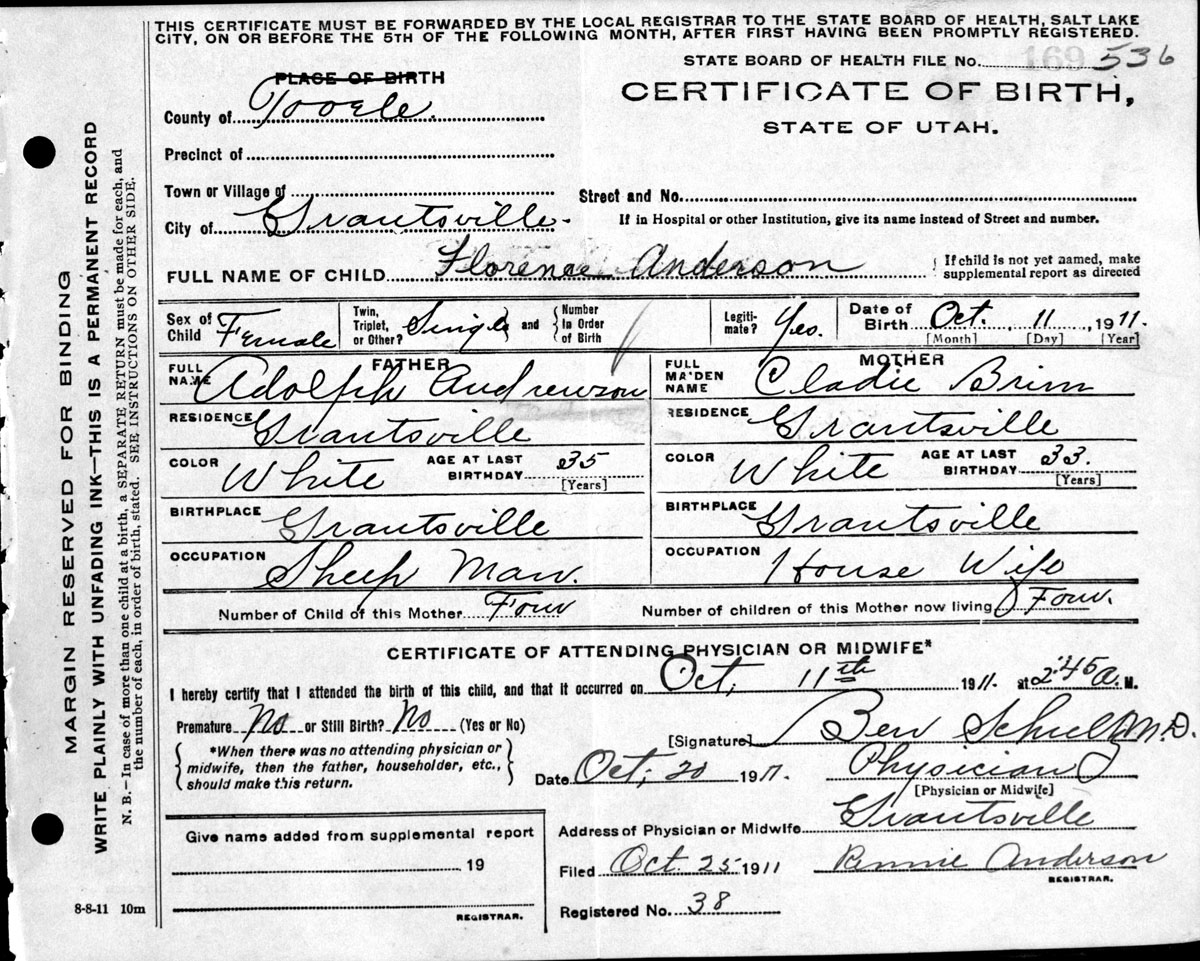 THIS CERTIFICATE MUST BE FORWARDED BY THE LOCAL REGISTRAR TO THE STATE BOARD OF HEALTH, SALT LAKE
CITY, ON OR BEFORE THE 5TH OF THE FOLLOWING MONTH, AFTER FIRST HAVING BEEN PROMPTLY REGISTERED.
STATE BOARD OF HEALTH FILE No. 169 536
PLACE OF BIRTH
CERTIFICATE OF BIRTH,
STATE OF UTAH.
County of Tooele.
Precinct of
Town or Village of
Street and No.
City of Grantsville.
If in Hospital or other Institution, give its name instead of Street and number.
FULL NAME OF CHILD Florence Anderson
If child is not yet named, make
supplemental report as directed
Sex of Child Female
Twin, Triplet, or Other? Single and Number In Order of Birth
Legiti-mate? Yes.
Date of Birth Oct. 11, 1911.
[Month] [Day] [Year]
FATHER
FULL NAME Adolph Andrewson
RESIDENCE Grantsville
COLOR White AGE AT LAST BIRTHDAY 35 [Years]
BIRTHPLACE Grantsville
OCCUPATION Sheep Man.
MOTHER
FULL MAIDEN NAME Cladie Brim
RESIDENCE Grantsville
COLOR White AGE AT LAST BIRTHDAY 33. [Years]
BIRTHPLACE Grantsville
OCCUPATION House Wife
Number of Child of this Mother Four Number of children of this Mother now living Four.
CERTIFICATE OF ATTENDING PHYSICIAN OR MIDWIFE*
I hereby certify that I attended the birth of this child, and that it occurred on Oct, 11th 1911. at 2:45 A. M.
Premature No or Still Birth? No (Yes or No)
[Signature] Ben M.D.
*When there was no attending physician or
midwife, then the father, householder, etc.,
should make this return.
Date Oct; 20 1911. Physician
[Physician or Midwife]
Address of Physician or Midwife Grantsville
Give name added from supplemental report
19
REGISTRAR.
Filed Oct. 25 1911 Anderson
REGISTRAR.
Registered No. 38
8-8-11 10m
MARGIN RESERVED FOR BINDING
WRITE PLAINLY WITH UNFADING INK—THIS IS A PERMANENT RECORD
N. B.—In case of more than one child at a birth, a SEPARATE RETURN must be made for each, and
the number of each, in order of birth, stated. SEE INSTRUCTIONS ON OTHER SIDE.